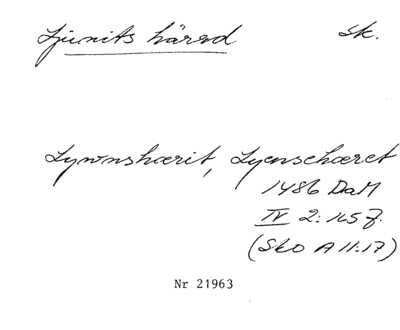 Ljunits härad Sk.
Lywnshærit, Lyenschæret
1486 DaM
IV 2:165 f.
(Sko A II:17)
Nr 21963